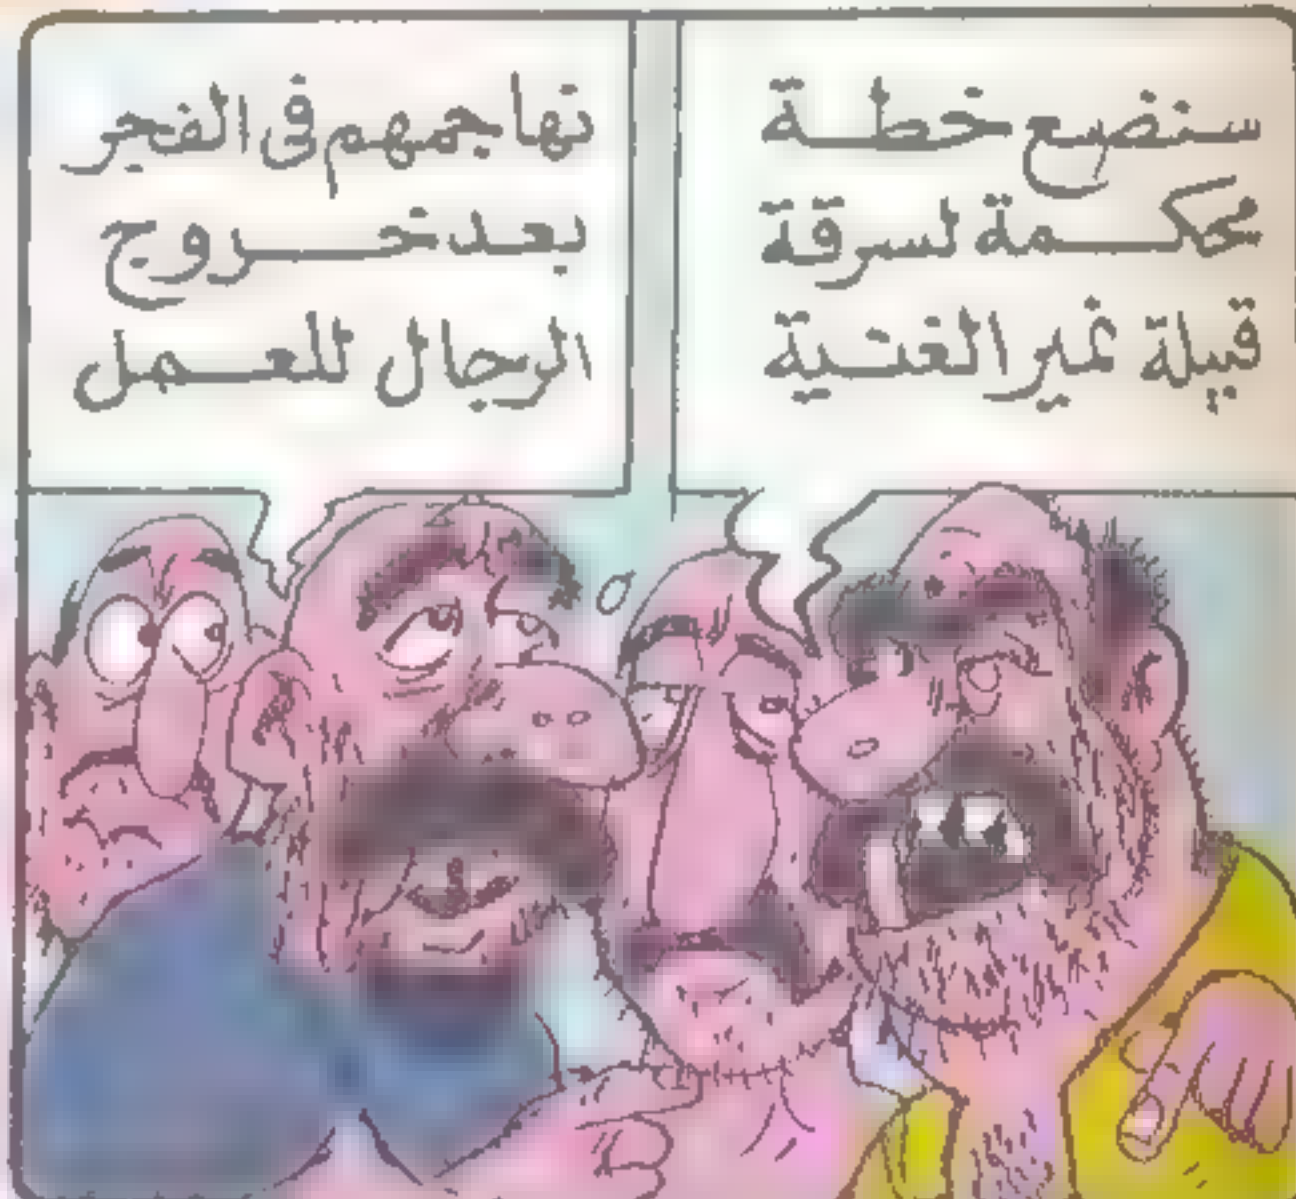 سنضع خطة
محكمة لسرقة
قبيلة نمير الغنية
نهاجمهم فى الفجر
بعد خروج
الرجال للعمل